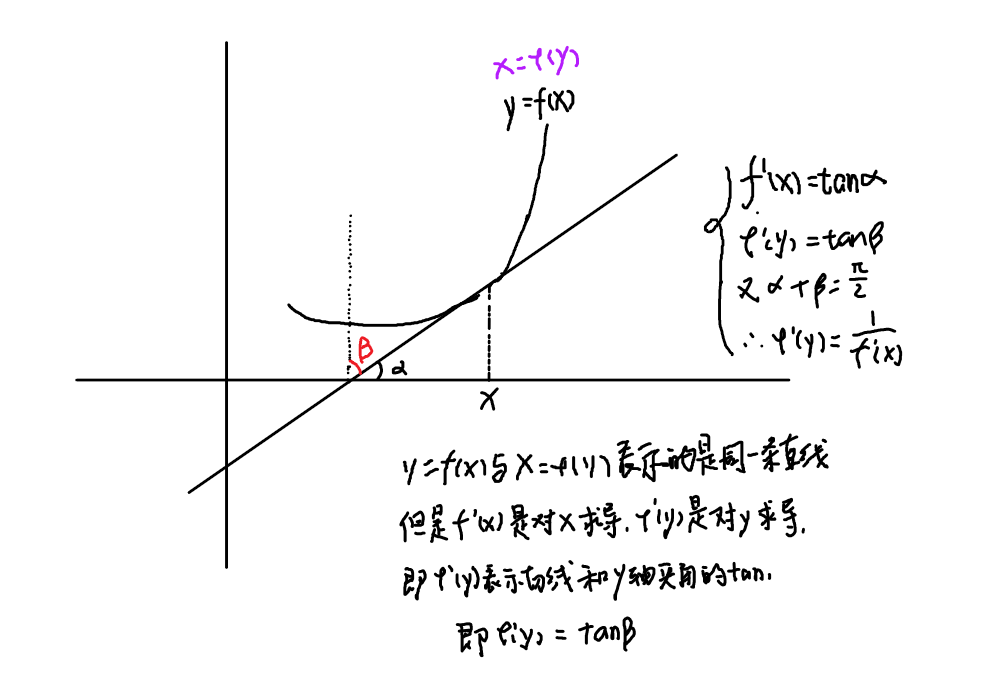 x=φ(y)
y=f(x)
f'(x)=tanα
φ'(y)=tanβ
又 α+β=π/2
∴ φ'(y)=1/f'(x)
β
α
x
y=f(x)与x=φ(y)表示的是同一条直线
但是f'(x)是对x求导.φ'(y)是对y求导.
即φ'(y)表示切线和y轴夹角的tan.
即φ'(y)=tanβ